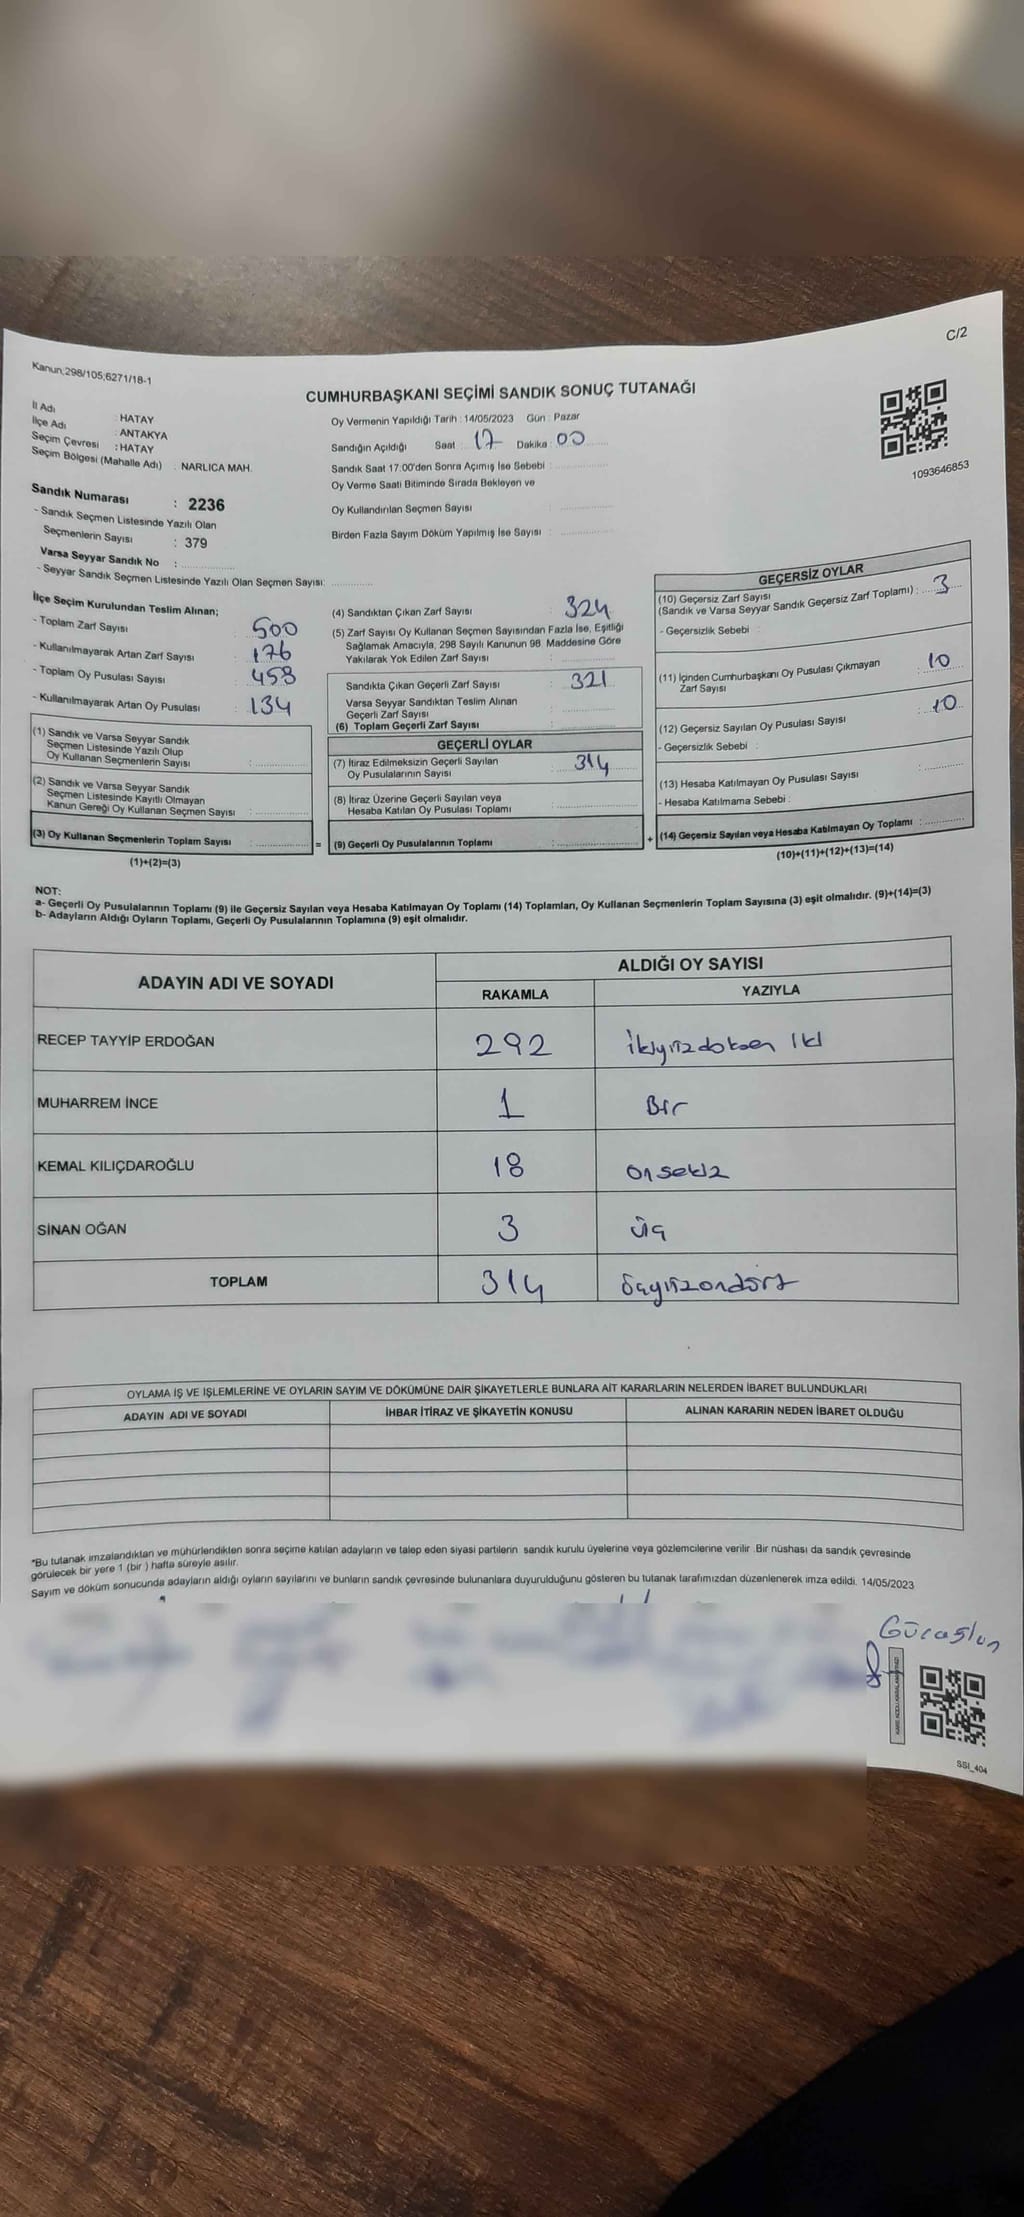 C/2
Kanun;298/105;6271/18-1
CUMHURBAŞKANI SEÇİMİ SANDIK SONUÇ TUTANAĞI
İl Adı : HATAY
İlçe Adı : ANTAKYA
Seçim Çevresi : HATAY
Seçim Bölgesi (Mahalle Adı) : NARLICA MAH.
Sandık Numarası : 2236
- Sandık Seçmen Listesinde Yazılı Olan
Seçmenlerin Sayısı : 379
Varsa Seyyar Sandık No :
- Seyyar Sandık Seçmen Listesinde Yazılı Olan Seçmen Sayısı:
Oy Vermenin Yapıldığı Tarih : 14/05/2023 Gün : Pazar
Sandığın Açıldığı Saat : 17 Dakika : 00
Sandık Saat 17:00'den Sonra Açımış İse Sebebi :
Oy Verme Saati Bitiminde Sırada Bekleyen ve
Oy Kullandırılan Seçmen Sayısı :
Birden Fazla Sayım Döküm Yapılmış İse Sayısı :
1093646853
İlçe Seçim Kurulundan Teslim Alınan;
- Toplam Zarf Sayısı : 500
- Kullanılmayarak Artan Zarf Sayısı : 176
- Toplam Oy Pusulası Sayısı : 458
- Kullanılmayarak Artan Oy Pusulası : 134
(1) Sandık ve Varsa Seyyar Sandık
Seçmen Listesinde Yazılı Olup
Oy Kullanan Seçmenlerin Sayısı :
(2) Sandık ve Varsa Seyyar Sandık
Seçmen Listesinde Kayıtlı Olmayan
Kanun Gereği Oy Kullanan Seçmen Sayısı :
(3) Oy Kullanan Seçmenlerin Toplam Sayısı :
(1)+(2)=(3)
(4) Sandıktan Çıkan Zarf Sayısı : 324
(5) Zarf Sayısı Oy Kullanan Seçmen Sayısından Fazla İse, Eşitliği
Sağlamak Amacıyla, 298 Sayılı Kanunun 98. Maddesine Göre
Yakılarak Yok Edilen Zarf Sayısı :
Sandıkta Çıkan Geçerli Zarf Sayısı : 321
Varsa Seyyar Sandıktan Teslim Alınan
Geçerli Zarf Sayısı :
(6) Toplam Geçerli Zarf Sayısı :
GEÇERLİ OYLAR
(7) İtiraz Edilmeksizin Geçerli Sayılan
Oy Pusulalarının Sayısı : 314
(8) İtiraz Üzerine Geçerli Sayılan veya
Hesaba Katılan Oy Pusulası Toplamı :
= (9) Geçerli Oy Pusulalarının Toplamı :
GEÇERSİZ OYLAR
(10) Geçersiz Zarf Sayısı
(Sandık ve Varsa Seyyar Sandık Geçersiz Zarf Toplamı) : 3
- Geçersizlik Sebebi :
(11) İçinden Cumhurbaşkanı Oy Pusulası Çıkmayan
Zarf Sayısı : 10
(12) Geçersiz Sayılan Oy Pusulası Sayısı : 10
- Geçersizlik Sebebi :
(13) Hesaba Katılmayan Oy Pusulası Sayısı :
- Hesaba Katılmama Sebebi :
+ (14) Geçersiz Sayılan veya Hesaba Katılmayan Oy Toplamı :
(10)+(11)+(12)+(13)=(14)
NOT:
a- Geçerli Oy Pusulalarının Toplamı (9) ile Geçersiz Sayılan veya Hesaba Katılmayan Oy Toplamı (14) Toplamları, Oy Kullanan Seçmenlerin Toplam Sayısına (3) eşit olmalıdır. (9)+(14)=(3)
b- Adayların Aldığı Oyların Toplamı, Geçerli Oy Pusulalarının Toplamına (9) eşit olmalıdır.
ADAYIN ADI VE SOYADI ALDIĞI OY SAYISI
RAKAMLA YAZIYLA
RECEP TAYYİP ERDOĞAN 292 ikiyüzdoksan iki
MUHARREM İNCE 1 Bir
KEMAL KILIÇDAROĞLU 18 onsekiz
SİNAN OĞAN 3 üç
TOPLAM 314 üçyüzondört
OYLAMA İŞ VE İŞLEMLERİNE VE OYLARIN SAYIM VE DÖKÜMÜNE DAİR ŞİKAYETLERLE BUNLARA AİT KARARLARIN NELERDEN İBARET BULUNDUKLARI
ADAYIN ADI VE SOYADI İHBAR İTİRAZ VE ŞİKAYETİN KONUSU ALINAN KARARIN NEDEN İBARET OLDUĞU
*Bu tutanak imzalandıktan ve mühürlendikten sonra seçime katılan adayların ve talep eden siyasi partilerin sandık kurulu üyelerine veya gözlemcilerine verilir .Bir nüshası da sandık çevresinde
görülecek bir yere 1 (bir ) hafta süreyle asılır.
Sayım ve döküm sonucunda adayların aldığı oyların sayılarını ve bunların sandık çevresinde bulunanlara duyurulduğunu gösteren bu tutanak tarafımızdan düzenlenerek imza edildi. 14/05/2023
Gücaslan
SSI_404